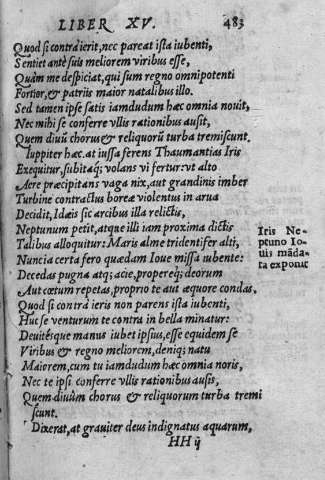 LIBER XV. 483
Quod si contra ierit, nec pareat ista iubenti,
Sentiet antè suis meliorem viribus esse,
Quàm me despiciat, qui sum regno omnipotenti
Fortior, & patriis maior natalibus illo.
Sed tamen ipse satis iamdudum hæc omnia nouit,
Nec mihi se conferre vllis rationibus ausit,
Quem diuû chorus & reliquorū turba tremiscunt.
Iuppiter hæc. at iussa ferens Thaumantias Iris
Exequitur, subitaq; volans vi fertur vt alto
Aere præcipitans vaga nix, aut grandinis imber
Turbine contractus boreæ violentus in arua
Decidit, Idæis sic arcibus illa relictis,
Neptunum petit, atque illi iam proxima dictis
Talibus alloquitur: Maris alme tridentifer alti,
Iris Ne-
ptuno Io-
uis māda-
ta exponit
Nuncia certa fero quædam Ioue missa iubente:
Decedas pugna atq; acie, propereq; deorum
Aut cœtum repetas, proprio te aut æquore condas,
Quod si contrà ieris non parens ista iubenti,
Huc se venturum te contra in bella minatur:
Deuitésque manus iubet ipsius, esse equidem se
Viribus & regno meliorem, deniq; natu
Maiorem, cum tu iamdudum hæc omnia noris,
Nec te ipsi conferre vllis rationibus ausis,
Quem diuûm chorus & reliquorum turba tremi
scunt.
Dixerat, at grauiter deus indignatus aquarum,
HH ij